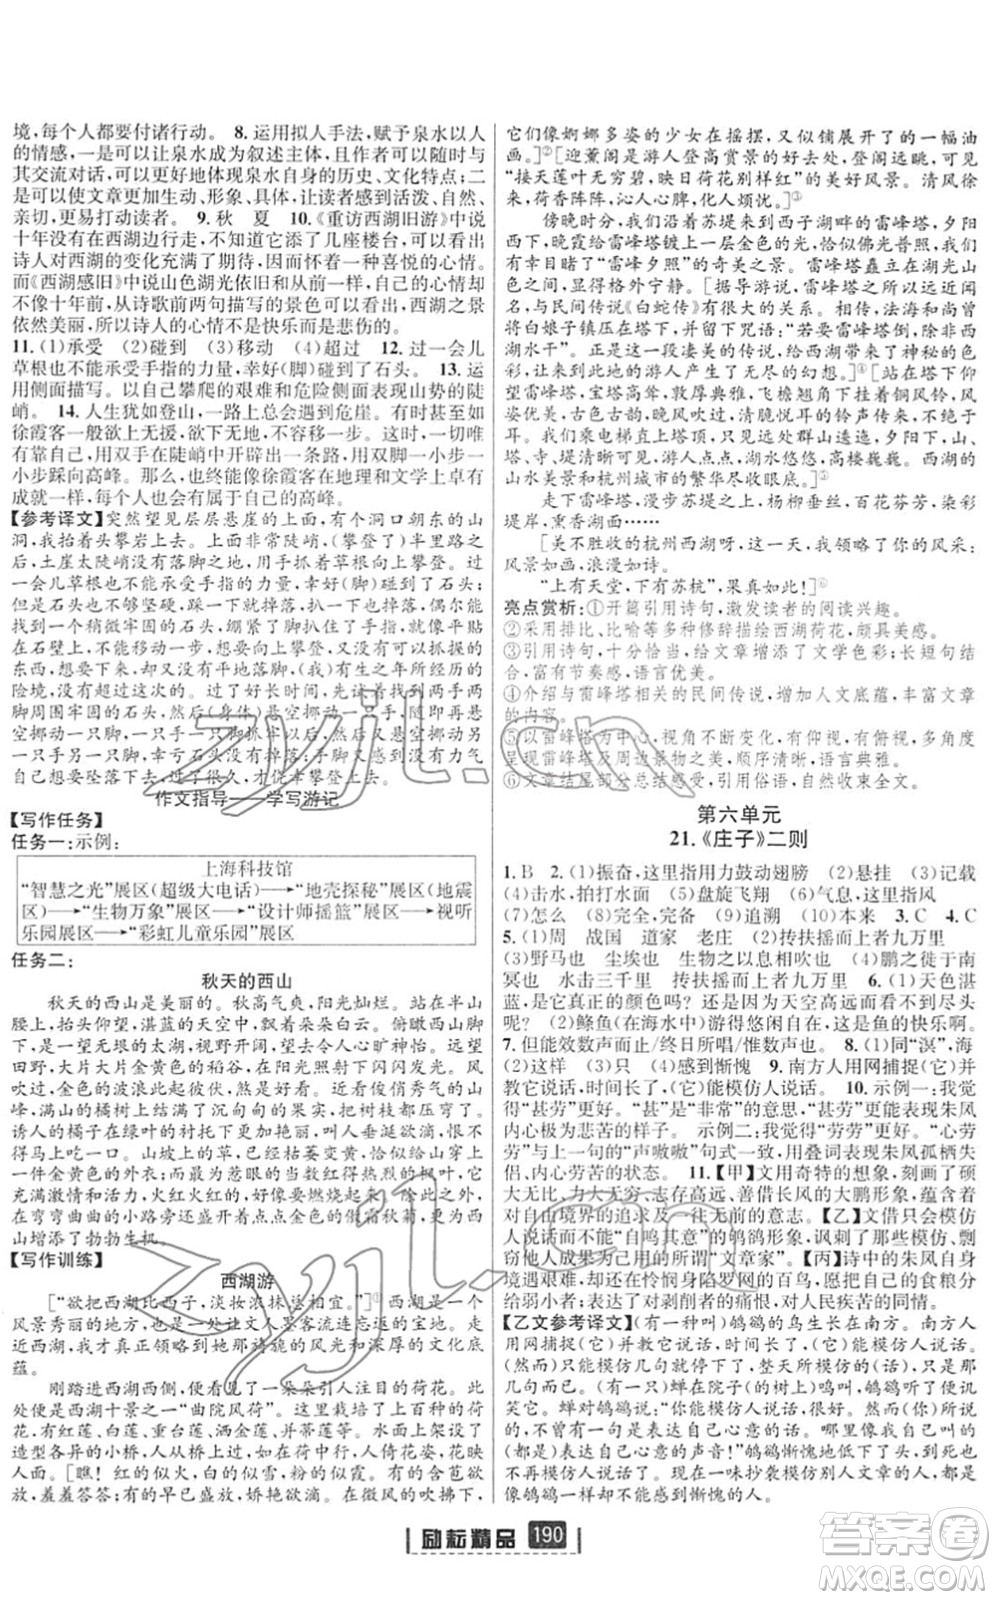 境,每个人都要付诸行动。 8. 运用拟人手法,赋予泉水以人
的情感,一是可以让泉水成为叙述主体,且作者可以与
其交流对话,可更好地体现泉水自身的历史、文化特点;二是
可以使文章更加生动、形象、具体,让读者感到活泼、自然、
亲切,更易打动读者。 9. 秋 夏 10.《重访西湖旧游》中说
十年没有在西湖边行走,不知道又添了几座楼台,可以看出
诗人对西湖的变化充满了期待,因此有一种喜悦的心情。
而《西湖感旧》中说山色湖光依旧和以前一样,自己的心情却
不像十年前,从诗歌前两句描写的景色可以看出,西湖之景
依然美丽,所以诗人的心情不是快乐而是悲伤的。
11. (1)承受 (2)碰到 (3)移动 (4)超过 12. 过一会儿
草根也不能承受手指的力量,幸好(脚)碰到了石头。 13. 运
用侧面描写。以自己攀爬的艰难和危险侧面表现山势的陡
峭。 14. 人生犹如登山,一路上总会遇到危崖。有时甚至如
徐霞客一般欲上无援,欲下无地,不容移步。这时,一切唯有
靠自己,用双手在陡峭中开辟出一条路,用双脚一小步一
小步踩向高峰。那么,便能像徐霞客在地理和文学上取得
成就一样,每个人也会有属于自己的高峰。
【参考译文】突然望见层层悬崖的上面,有个洞口朝东的山
洞,我抬着头攀岩上去。上面非常陡峭,(攀登了)半里路之
后,土崖陡峭得无法落脚,用手抓着草根向上攀登。过了
一会儿草根也不能承受手指的力量,幸好(脚)碰到了石头;
但是石头也不够坚硬,踩一下就掉落,扒一下也掉落,偶尔找
到一个稍微牢固的石头,绷紧了脚挂着手指,如同平贴
在石壁上,不容许移动一步,想要上去没有抓的
东西,想要下来也没有地方,(我)有生之年所经历的
险境,没有超过这次的。过了好长时间,先找到两手两
脚周围牢固的石头,然后(身体)悬空挪动一只手,随即再悬
空挪动一只脚,一只脚牢固了,然后又悬空挪动一只手
一只脚,幸亏石头没掉落,(但)手脚没有力气
自己想要坠落下去。过了很久,才侥幸攀登上去。
作文指导——学写游记
【写作任务】
任务一:示例:
上海科技馆
“智慧之光”展区(超级大电话)→“地壳探秘”展区(地震
区)→“生物万象”展区→“设计师摇篮”展区→视听
乐园展区→“彩虹儿童乐园”展区
任务二:
秋天的西山
秋天的西山是美丽的。秋高气爽,阳光灿烂。站在半山
腰上,抬头仰望,湛蓝的天空中,飘着朵朵白云。俯瞰西山脚
下,是一望无垠的太湖,视野开阔,令人心旷神怡。远望
田野,大片大片金黄色的稻谷,在阳光照射下闪闪发光。风
吹过,金色的波浪此起彼伏。近看有座俊俏秀气的石山
峰,满山的橘树上挂了沉甸甸的果实,树枝都压弯了。
诱人的橘子在绿叶的衬托下更加鲜艳,叫人垂涎欲滴。
山坡上,一簇簇的草丛中,草已经枯萎变黄,好像给山坡穿上
一件金黄色的外衣;而一片片惹眼的枫叶把西山点缀得更
美了。那枫叶像一个个小火炬,火红火红的,鲜艳极了。
在弯弯曲曲的小路旁还盛开着点点金色的傲霜秋菊,使西
山增添了勃勃生机。
【写作训练】
西湖游
[“欲把西湖比西子,淡妆浓抹总相宜。”]① 西湖,是一个
风景秀丽的地方,也是一个令文人、游客流连忘返的宝地。走
近西湖,今天我才真正领略到她那旖旎的风光和深厚的文化底
蕴。
刚踏进西湖西侧,便可看见一朵朵引人注目的荷花。此
处便是西湖十景之一“曲院风荷”。里面栽培了上百种荷花,
有红莲、白莲、重台莲、洒金莲、并蒂莲等。水面上架设了
造型各异的小桥,人从桥上过,如在荷中行,人倚花姿,花映人
面。人花两相恋。[瞧! 红的似火,白的似雪,粉的似霞。有的含苞欲
放,羞羞答答;有的竞相怒放,娇艳欲滴。在微风的吹拂下,
它们像婀娜多姿的少女在摇摆,又似铺展开了的一幅油
画。]②[迎薰阁是游人登高赏景的好去处,登阁远眺,可见
“接天莲叶无穷碧,映日荷花别样红”的美好风景。清风徐
徐,荷香阵阵,沁人心脾,化人烦忧。]③
傍晚时分,我们沿着苏堤走到西子湖畔的雷峰塔,夕阳
西下,余晖给雷峰塔镀上一层金色的光,恰似佛光普照,我们
有幸目睹了“雷峰夕照”的奇美之景。雷峰塔矗立在湖光山
色之中,显得格外宁静。[据导游说,雷峰塔之所以远近闻
名,与民间传说《白蛇传》有很大的关系。相传,法海和尚曾
将白娘子镇压在塔下,并留下咒语:“若要雷峰塔倒,除非西
湖水干”。正是这一段凄美的传说,给西湖带来了神秘的色
彩,让无数的游人产生了无尽的幻想。]④[站在塔下,抬头仰望
雷峰塔,宝塔高耸,敦厚典雅,飞檐翘角下挂着铜风铃,风
姿优美,古色古韵,晚风吹过,清脆悦耳的铃声传来,不绝于
耳。我们乘电梯直上塔顶,远处群山逶迤,夕阳下,山、
水、塔、寺、城融为一体,游人点点,湖水悠悠,高楼巍巍。西湖的
山水美景和杭州城市的繁华尽收眼底。]⑤
走下雷峰塔,漫步苏堤之上,杨柳垂丝,百花芬芳,染彩
堤岸,熏香湖面……
[美不胜收的杭州西湖呀,这一天,我领略了你的风采:
风景如画,浪漫如诗。
“上有天堂,下有苏杭”,果真如此!]⑥
亮点赏析:①开篇引用诗句,激发读者的阅读兴趣。
②采用排比、比喻等多种修辞描绘西湖荷花,颇具美感。
③引用诗句,十分恰当,给文章增添了文学色彩;长短句结
合,富有节奏感,语言优美。
④介绍与雷峰塔相关的民间传说,增加人文底蕴,丰富文章
的内容。
⑤以雷峰塔为中心,视角不断变化,有仰视,有俯视,富有
⑥文章结尾部分总结全文,引用俗语,点明主题,升华感情。
第六单元
21.《庄子》二则
1. B 2. (1)振奋,这里指用力鼓动翅膀 (2)悬挂 (3)记载
(4)击水,拍打水面 (5)盘旋飞翔 (6)气息,这里指风
(7)怎么 (8)完全,完备 (9)追溯 (10)本来 3. C 4. C
5. (1)周 战国 道家 老庄 (2)抟扶摇而上者九万里
(3)野马也 尘埃也 生物之以息相吹也 (4)鹏之徙于南
冥也 水击三千里 抟扶摇而上者九万里 6. (1)天色湛
蓝,是它真正的颜色吗?还是因为天空高远而看不到尽头
呢? (2)鲦鱼(在海水中)游得悠闲自在,这是鱼的快乐啊。
7. 但能效数声而止/终日所唱/惟数声也。 8. (1)同“溟”,海
(2)这样 (3)停止 (4)感到惭愧 9. 南方人用网捕捉(它)并
教它说话,时间长了,(它)就能模仿人说话。 10. 示例一:我觉
得“甚劳”更好。“甚”是“非常”的意思,“甚劳”更能表现朱凤
内心极为忧苦的样子。 示例二:我觉得“劳劳”更好。“心劳
劳”与上一句的“声嗷嗷”句式一致,用叠词表现朱凤孤栖失
侣、内心劳苦的状态。 11.【甲】文用奇特的想象,刻画了硕
大无比、力大无穷、志存高远、善借长风的大鹏形象,蕴含着
对自由境界的追求以及一往无前的意志。【乙】文借只会模仿
人说话而不能“自鸣其意”的鸲鹆形象,讽刺了那些模仿、剽
窃他人成果为己所用的所谓“文章家”。【丙】诗中的朱凤形象
身处高位却志在怜悯身陷罗网中的百鸟,愿意将自己的食粮分
给弱小者;表达了对剥削者的痛恨,对人民疾苦的同情。
【乙文参考译文】(有一种)叫鸲鹆的鸟生长在南方。南方人
用网捕捉(它)并教它说话,时间长了,(它)就能模仿人说话。
但(它)只能模仿几句就停止了,整天所说的(话),只是那
几句而已。(一只)蝉在院子(的树上)鸣叫,鸲鹆听了便讥
笑它。蝉对鸲鹆说:“你能模仿人说话,这很好;但你
所说的话,未曾表达自己的心意,哪里比得上我
能自己表达自己心意的声音!”鸲鹆惭愧地低下了头,到死也不
再模仿人说话了。现在一味抄袭模仿别人文章的人,都是
像鸲鹆一样惭愧的人。
励耘精品 190
zyjl.cn
zyjl.cn
答案圈
MXQE.COM